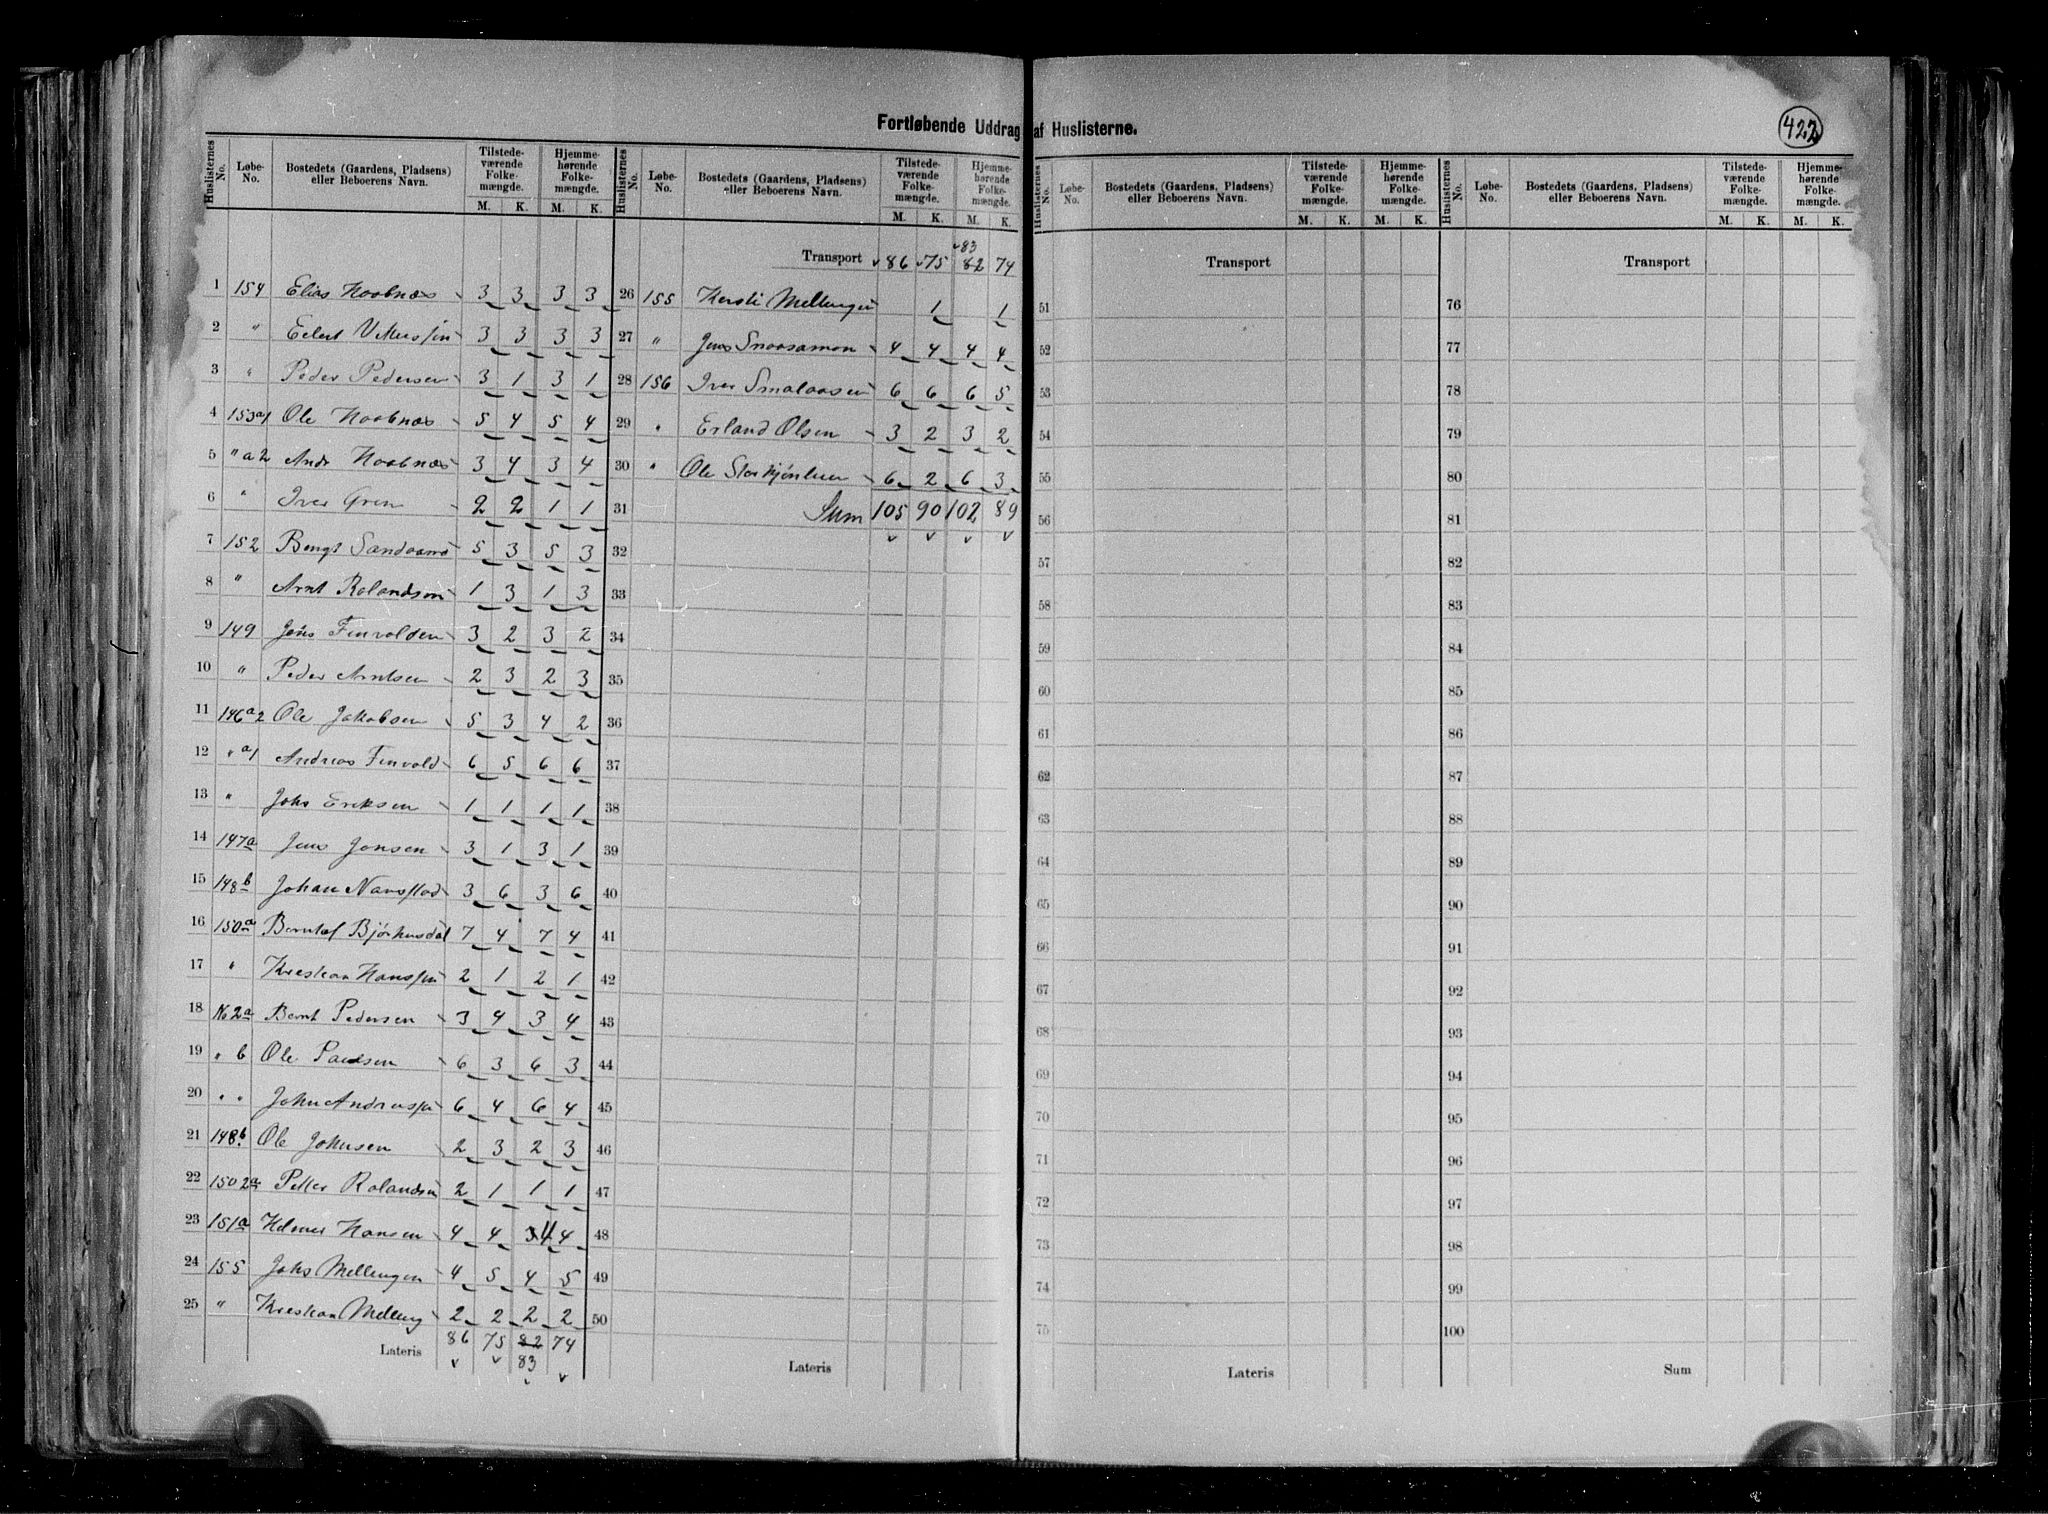 422
Fortløbende Uddrag af Huslisterne.
Huslisternes No. Løbe-No. Bostedets (Gaardens, Pladsens) eller Beboerens Navn. Tilstede-værende Folke-mængde. M. K. Hjemme-hørende Folke-mængde. M. K.
1 154 Elias 3 3 3 3
2 " Edert 3 3 3 3
3 " Peder Pedersen 3 1 3 1
4 153a1 Ole 5 4 5 4
5 " a2 Andr 3 4 3 4
6 " Iver Gren 2 2 1 1
7 152 Bengt 5 3 5 3
8 " Arnt Rolandsen 1 3 1 3
9 149 Johs Finvolden 3 2 3 2
10 " Peder Arntsen 2 3 2 3
11 146a2 Ole Jakobsen 5 3 4 2
12 " a1 Andreas Finvold 6 5 6 6
13 " Johs Eriksen 1 1 1 1
14 147a Jens Jonsen 3 1 3 1
15 148b Johan 3 6 3 6
16 150a Berntel Bjørhusdal 7 4 7 4
17 " Kristian Hanssen 2 1 2 1
18 No 2a Bernt Pedersen 3 4 3 4
19 " b Ole Paulsen 6 3 6 3
20 " " John Andreassen 6 4 6 4
21 148b Ole Johnsen 2 3 2 3
22 150 2a Petter Rolandsen 2 1 1 1
23 151a Helmer Hansen 4 4 3 4 4
24 155 Johs Mellingen 4 5 4 5
25 " Kristian Melling 2 2 2 2
Lateris 86 75 82 74
83
Huslisternes No. Løbe-No. Bostedets (Gaardens, Pladsens) eller Beboerens Navn. Tilstede-værende Folke-mængde. M. K. Hjemme-hørende Folke-mængde. M. K.
83
Transport 86 75 82 74
26 155 Kersti Mellingen 1 1
27 " Jens Snaasamon 4 4 4 4
28 156 Iver Smalaasen 6 6 6 5
29 " Erland Olsen 3 2 3 2
30 " Ole 6 2 6 3
31 Sum 105 90 102 89
32
33
34
35
36
37
38
39
40
41
42
43
44
45
46
47
48
49
50
Lateris
Huslisternes No. Løbe-No. Bostedets (Gaardens, Pladsens) eller Beboerens Navn. Tilstede-værende Folke-mængde. M. K. Hjemme-hørende Folke-mængde. M. K.
Transport
51
52
53
54
55
56
57
58
59
60
61
62
63
64
65
66
67
68
69
70
71
72
73
74
75
Lateris
Huslisternes No. Løbe-No. Bostedets (Gaardens, Pladsens) eller Beboerens Navn. Tilstede-værende Folke-mængde. M. K. Hjemme-hørende Folke-mængde. M. K.
Transport
76
77
78
79
80
81
82
83
84
85
86
87
88
89
90
91
92
93
94
95
96
97
98
99
100
Sum